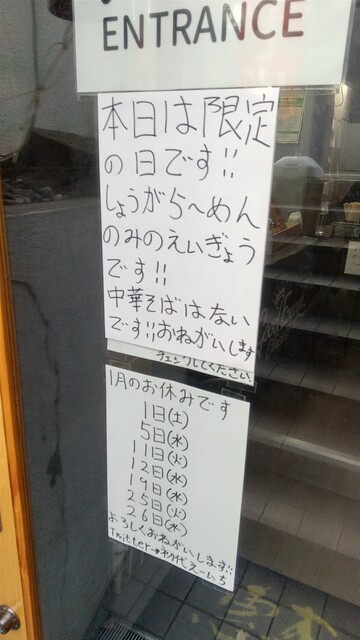 ENTRANCE
本日は限定
の日です!!
しょうがら〜めん
のみのえいぎょう
です!!
中華そばはない
です!!おねがいします
チェックしてください
1月のお休みです
1日(土)
5日(水)
11日(火)
12日(水)
19日(水)
25日(火)
26日(水)
よろしくおねがいします!!
Twitter→初代えーいち